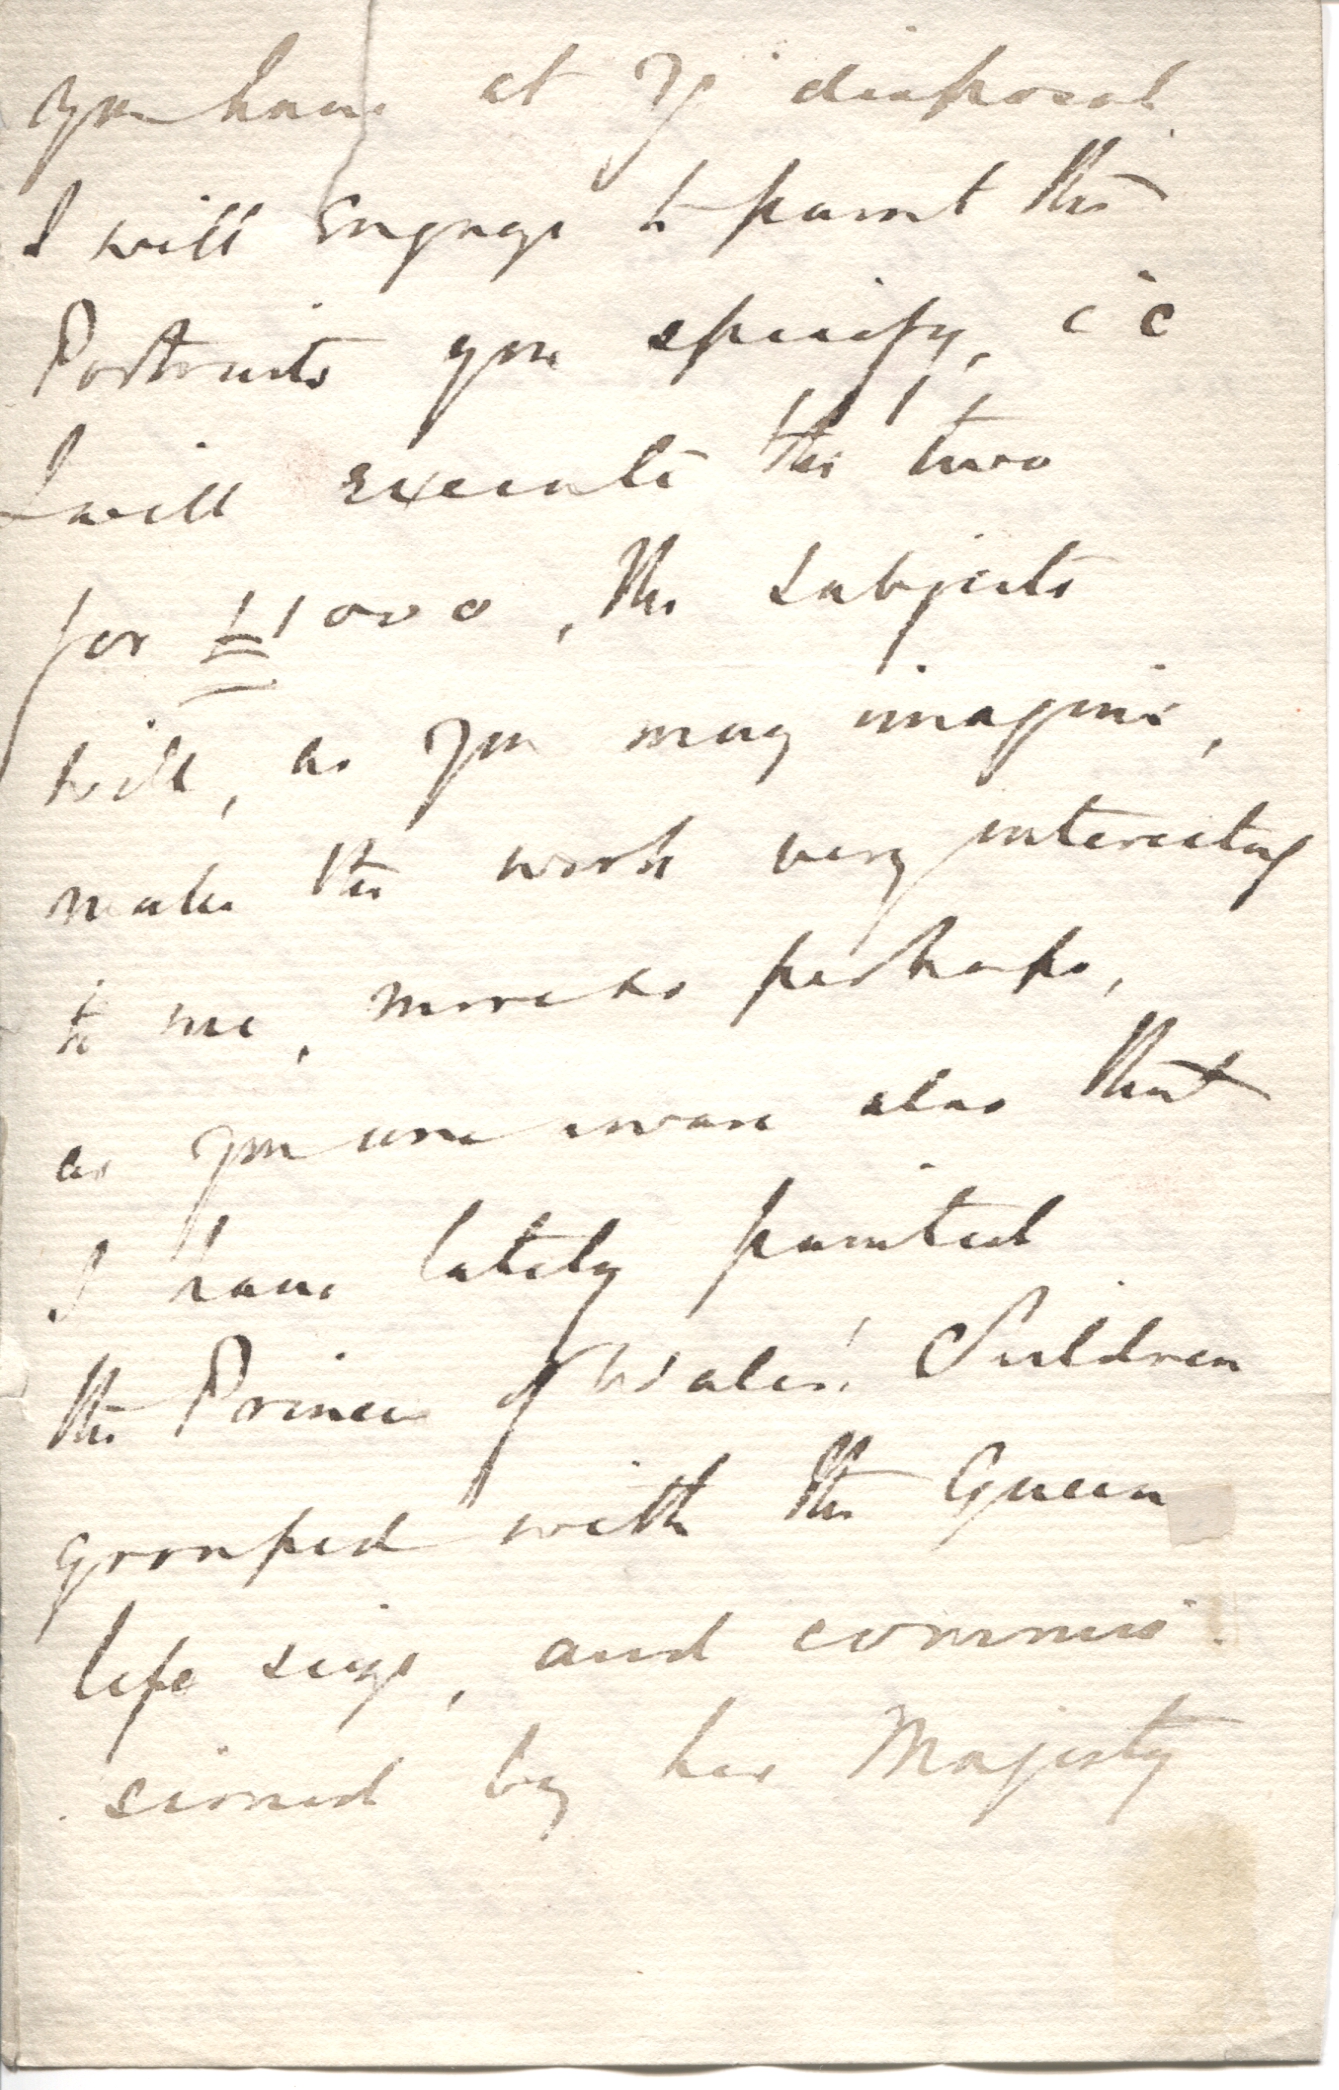 you have at yr disposal
I will Engage to paint the
Portraits you specify, i e
I will Execute the two
for £1000, the subjects
will, as you may imagine,
make the work very interesting
to me, more so perhaps,
as you are aware also that
I have lately painted
the Prince of Wales' Children
grouped with the Queen
life size, and commis
sioned by her Majesty